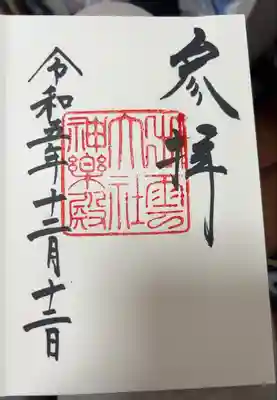 参拝
出雲
大社
神樂殿
令和五年十二月十二日